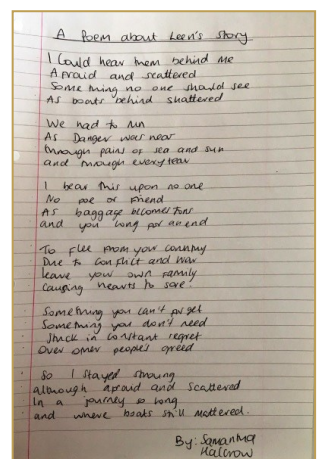 A Poem about Leen's Story
I Could hear them behind me
Afraid and scattered
Something no one should see
As boats behind shattered
We had to run
As Danger was near
through pains of sea and sun
and through every tear
I bear this upon no one
No foe or friend
As baggage becomes tons
and you long for an end
To flee from your country
Due to conflict and war
leave your own family
Causing hearts to sore.
Something you can't forget
Something you don't need
Stuck in constant regret
Over other people's greed
So I stayed strong
although afraid and Scattered
In a journey so long
and where boats still mattered.
By: Samantha
Halcrow